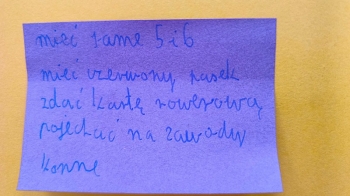 mieć same 5 i 6
mieć czerwony pasek
zdać kartę rowerową
pojechać na zawody
konne